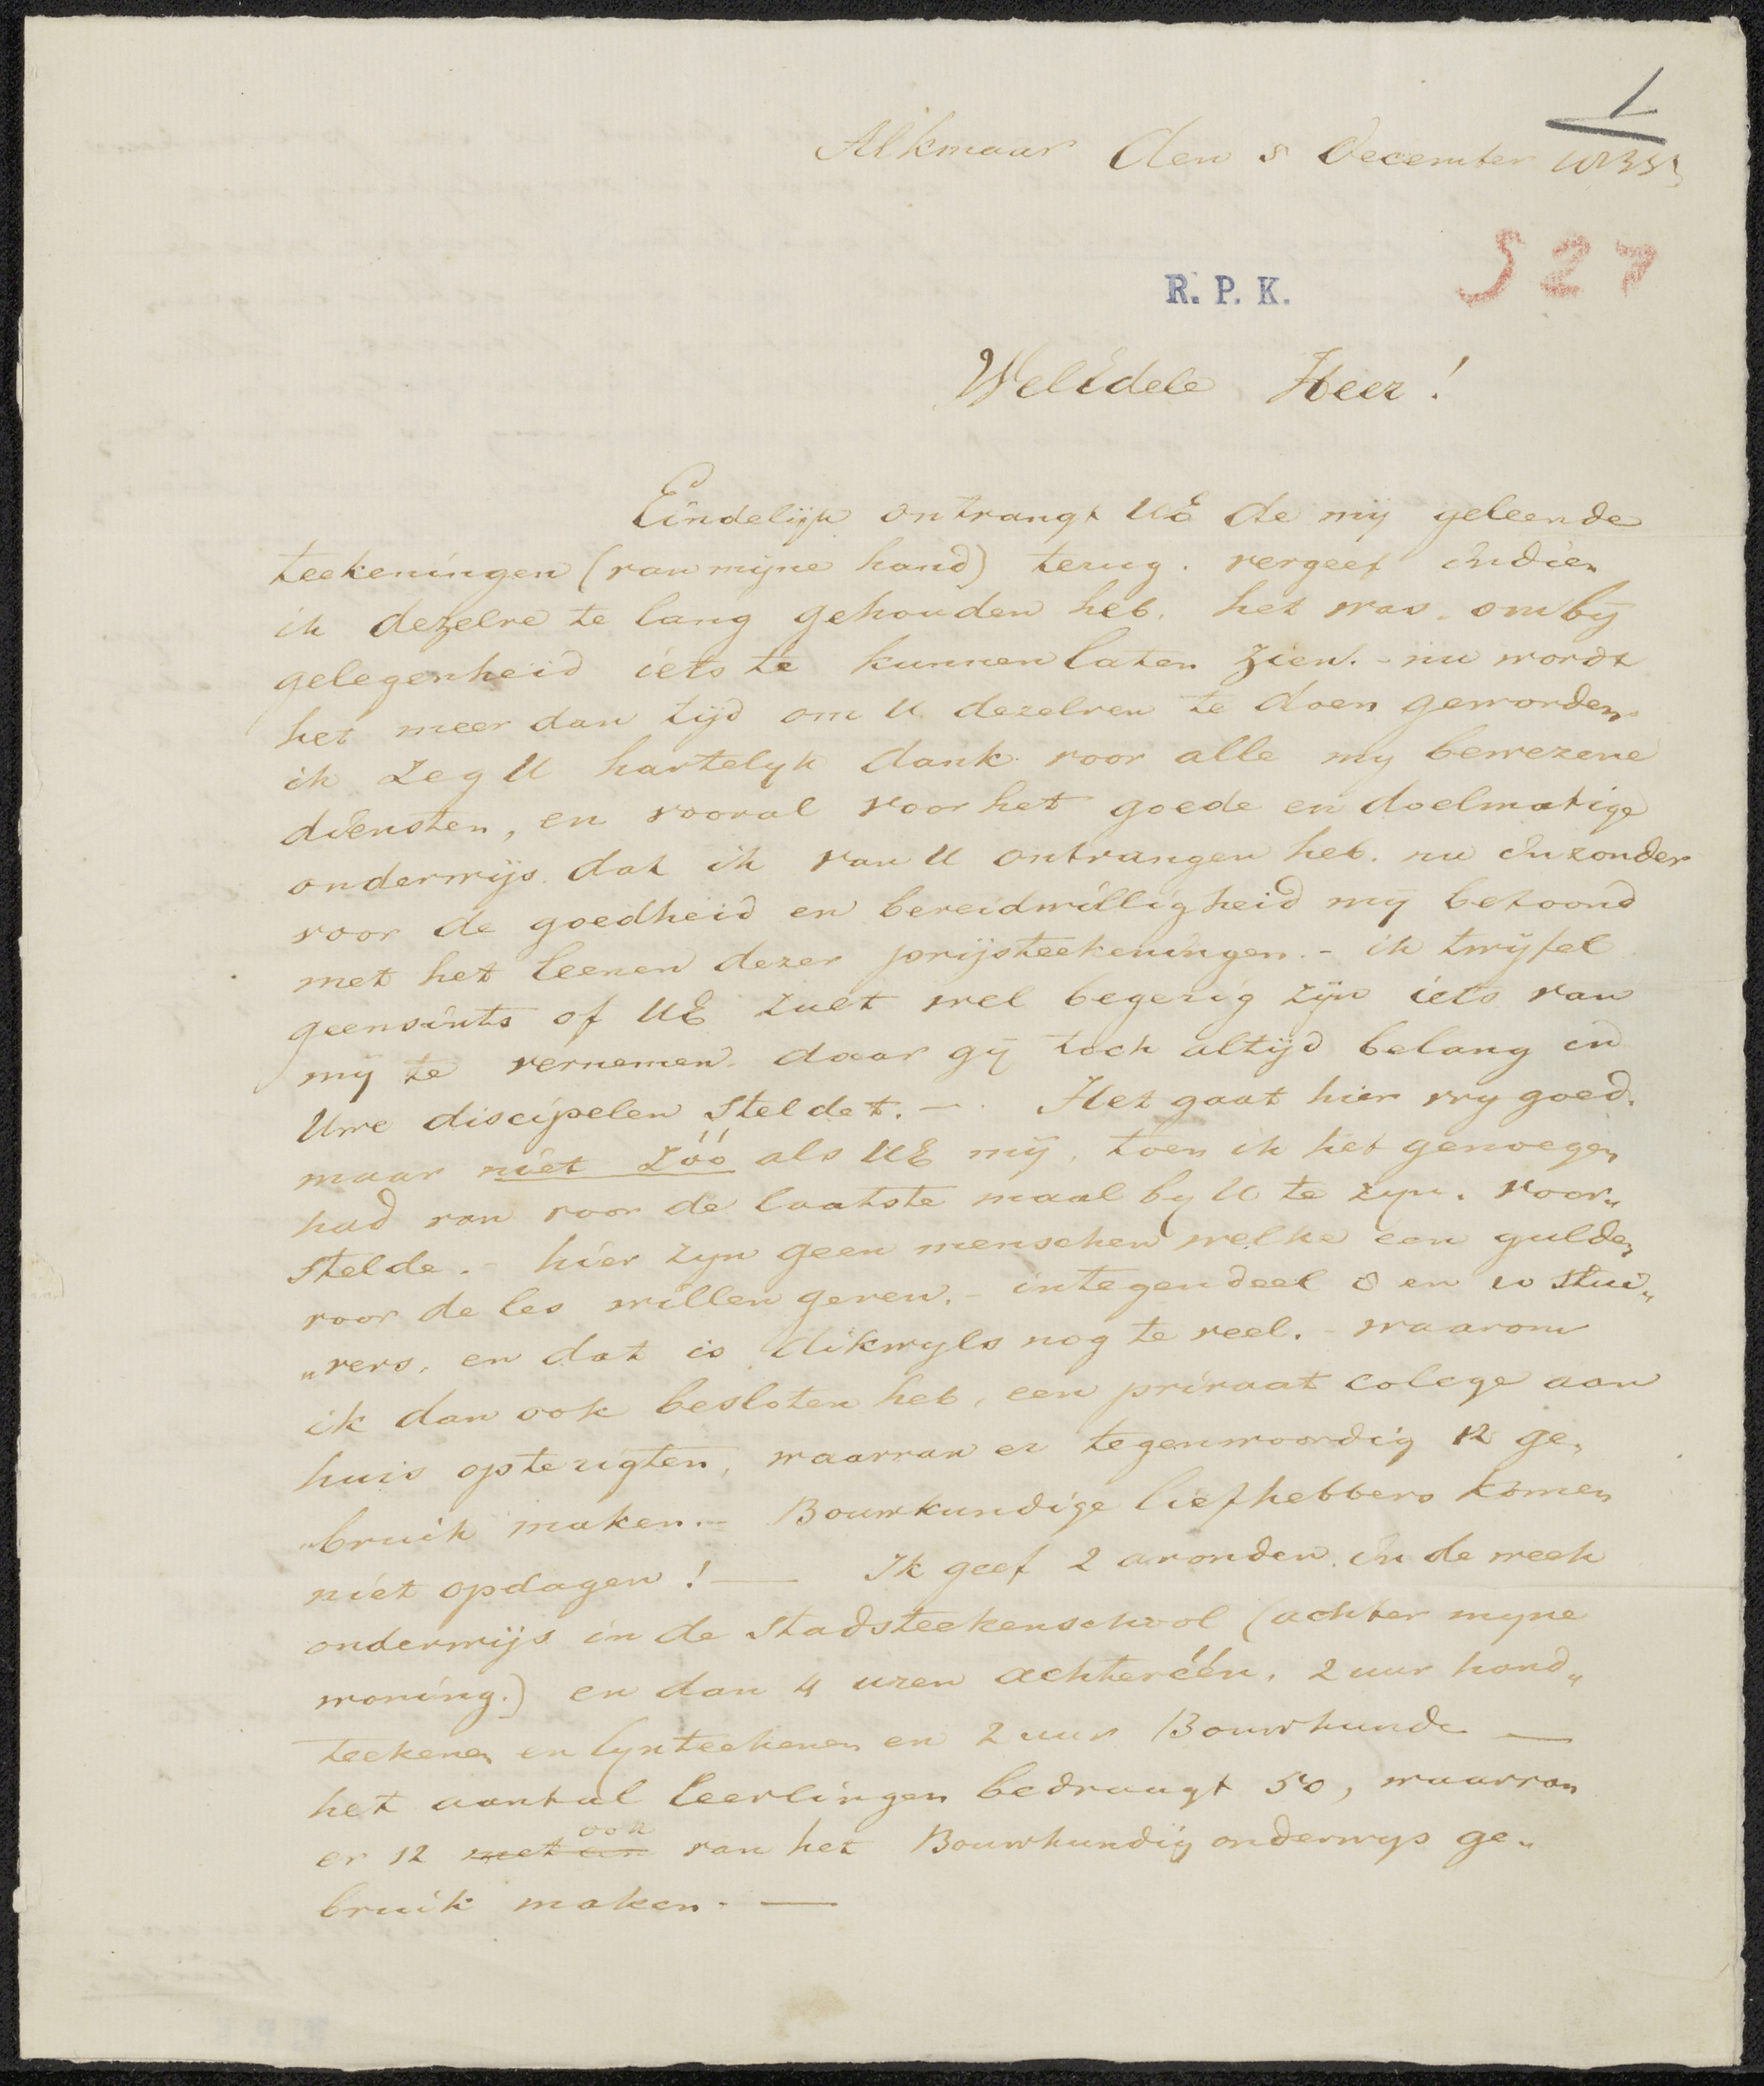 1
Alkmaar den 8 December
527
R. P. K.
WelEdele Heer!
Eindelijk ontvangt UE de mij geleende
teekeningen (van mijne hand) terug. vergeef indien
ik dezelve te lang gehouden heb. het was. om bij
gelegenheid iets te kunnen laten zien. - nu wordt
het meer dan tijd om U dezelven te doen geworden
ik zeg U hartelyk dank voor alle my bewezene
diensten, en vooral voor het goede en doelmatige
onderwijs dat ik van U ontvangen heb. nu inzonder
voor de goedheid en bereidwilligheid mij betoond
met het leenen dezer prijsteekeningen. - ik twijfel
geensints of UE zult wel begerig zijn iets van
mij te vernemen. daar gij toch altijd belang in
Uwe discipelen steldet. — . Het gaat hier vry goed.
maar niet zóó als UE mij, toen ik het genoegen
had van voor de laatste maal by U te zyn. voor„
stelde. - hier zyn geen menschen welke een gulden
voor de les willen geven. - integendeel 8 en 10 stui„
„vers, en dat is dikwyls nog te veel. - waarom
ik dan ook besloten heb, een privaat colege aan
huis opterigten, waarvan er tegenwoordig 12 ge„
„bruik maken. - Bouwkundige liefhebbers komen
niet opdagen! — Ik geef 2 avonden in de week
onderwijs in de Stadsteekenschool (achter myne
woning.) en dan 4 uren achteréén. 2 uur hand„
teekenen en lynteekenen en 2 uur Bouwkunde —
het aantal leerlingen bedraagt 50, waarvan
ook
er 12 met een van het Bouwkundig onderwys ge„
bruik maken. —